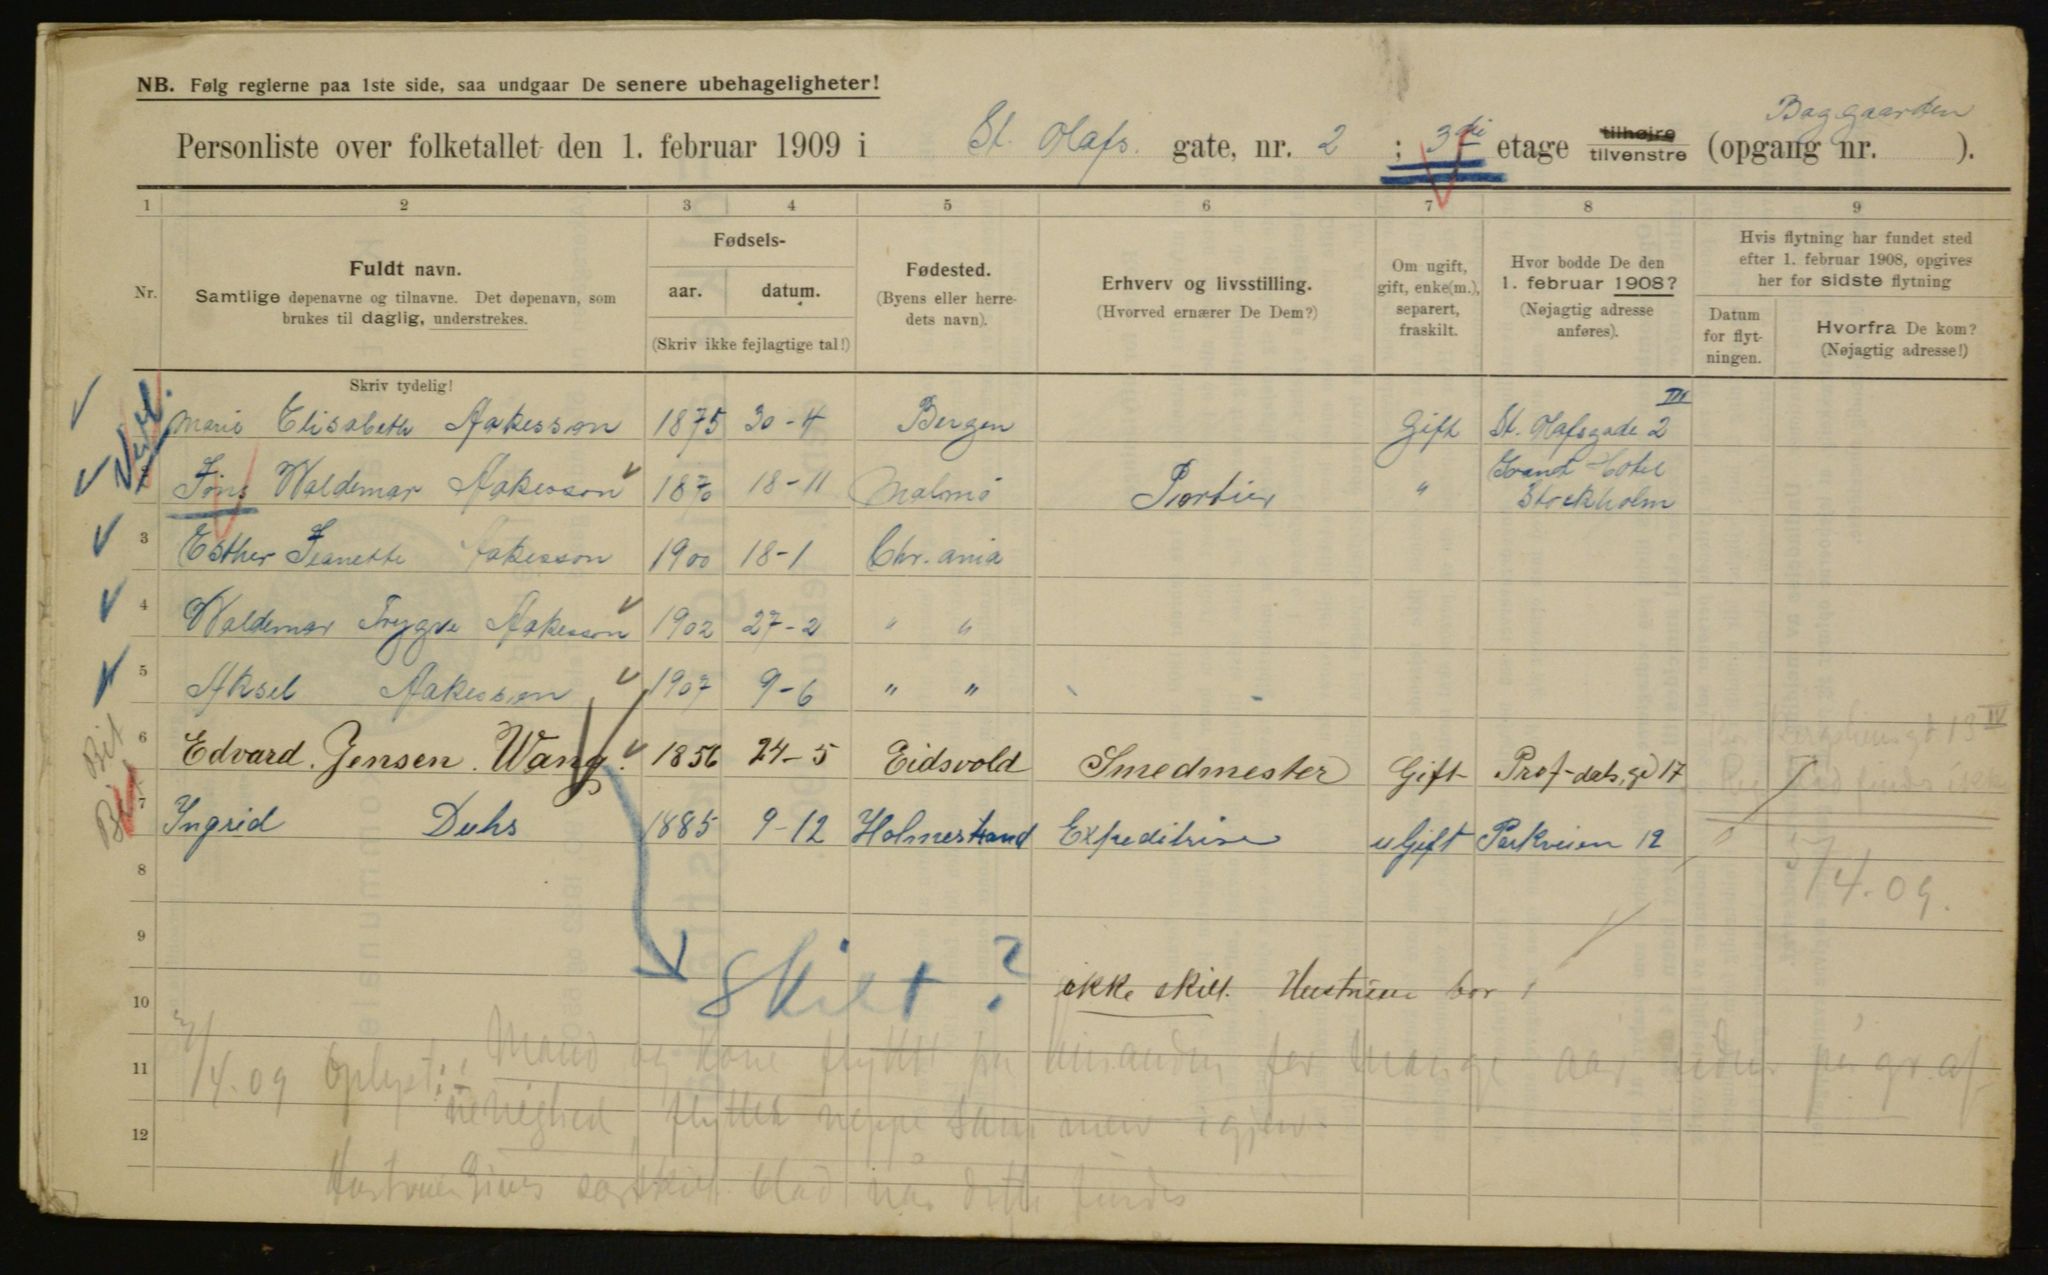 NB. Følg reglerne paa 1ste side, saa undgaar De senere ubehageligheter!
Baggaarden
Personliste over folketallet den 1. februar 1909 i St. Olafs gate, nr. 2 ; 3die etage tilhøjre tilvenstre (opgang nr. ).
1 2 3 4 5 6 7 8 9
Nr.
Fuldt navn.
Samtlige døpenavne og tilnavne. Det døpenavn, som
brukes til daglig, understrekes.
Skriv tydelig!
Fødsels-
aar. datum.
(Skriv ikke fejlagtige tal!)
Fødested.
(Byens eller herre-
dets navn).
Erhverv og livsstilling.
(Hvorved ernærer De Dem?)
Om ugift,
gift, enke(m.),
separert,
fraskilt.
Hvor bodde De den
1. februar 1908?
(Nøjagtig adresse
anføres).
Hvis flytning har fundet sted
efter 1. februar 1908, opgives
her for sidste flytning
Datum
for flyt-
ningen.
Hvorfra De kom?
(Nøjagtig adresse!)
Marie Elisabeth Aakesson 1875 30-4 Bergen Gift St. Olafsgade 2 III
Jöns Waldemar Aakesson 1870 18-11 Malmö Portier " Grand Hotel
Stockholm
3 Esther Jeanette Aakesson 1900 18-1 Chr.ania
4 Waldemar Trygve Aakesson 1902 27-2 " "
5 Aksel Aakesson 1907 9-6 " "
6 Edvard Jensen Wang 1856 24-5 Eidsvold Smedmester Gift Prof. dals. gd 17
7 Ingrid Duhs 1885 9-12 Holmestrand Expeditrise ugift Parkveien 12
8
/4.09.
9
Skilt?
10 ikke skilt. Hustruen bor
11 /4.09 Oplyst: Mand og kone flyttet fra hinanden for mange aar siden på gr. af
uenighed, flytter neppe sammen igjen.
12
Hustruen gives særskilt blad når dette findes